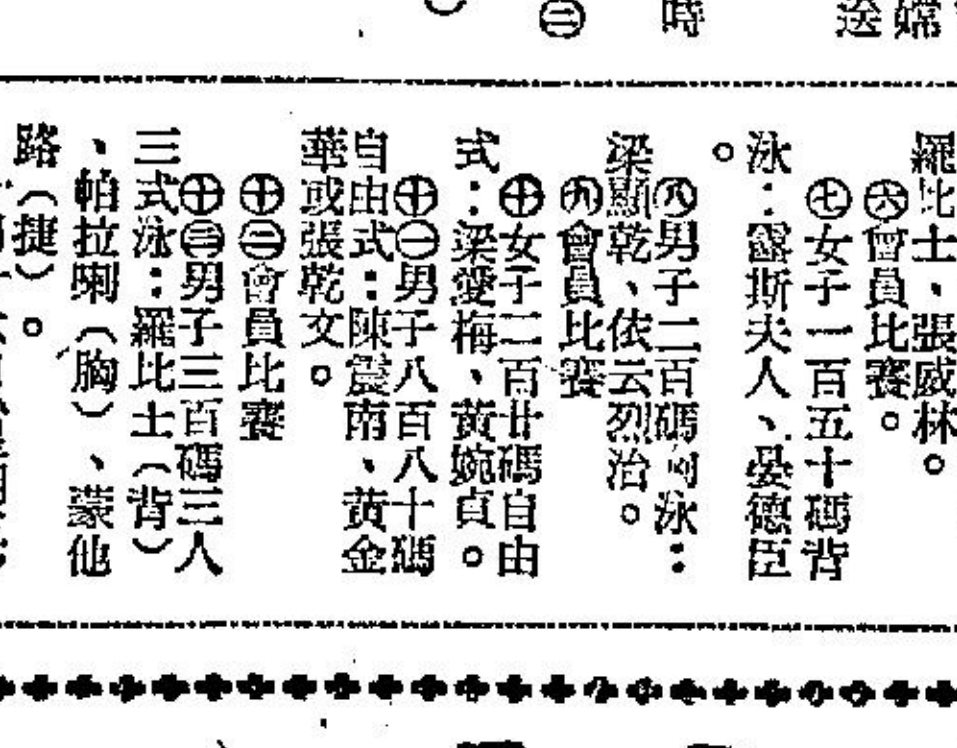 時
送嫦
羅比士、張威林。
㊅會員比賽。
㊆女子一百五十碼背
泳：露斯夫人、晏德臣
。
㊇男子二百碼 泳：
梁顯乾、依云烈治。
㊈會員比賽
㊉女子二百廿碼自由
式：梁愛梅、黃婉貞。
㊉㊀男子八百八十碼
自由式：陳震南、黃金
華或張乾文。
㊉㊁會員比賽
㊉㊂男子三百碼三人
三式泳：羅比士（背）
、帕拉喇（胸）、蒙他
路（捷）。